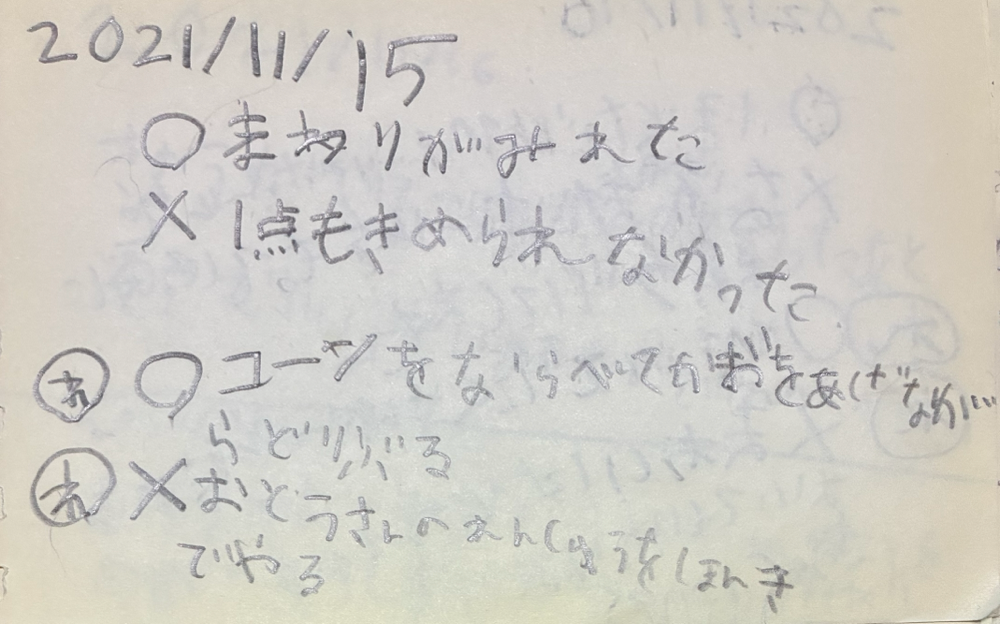 2021/11/15
○まわりがみれた
×1点もきめられなかった
㋔○コーンをならべてかおをあげながら
らどりぶる
㋔×おとうさんのれんしゅうをほんき
でやる